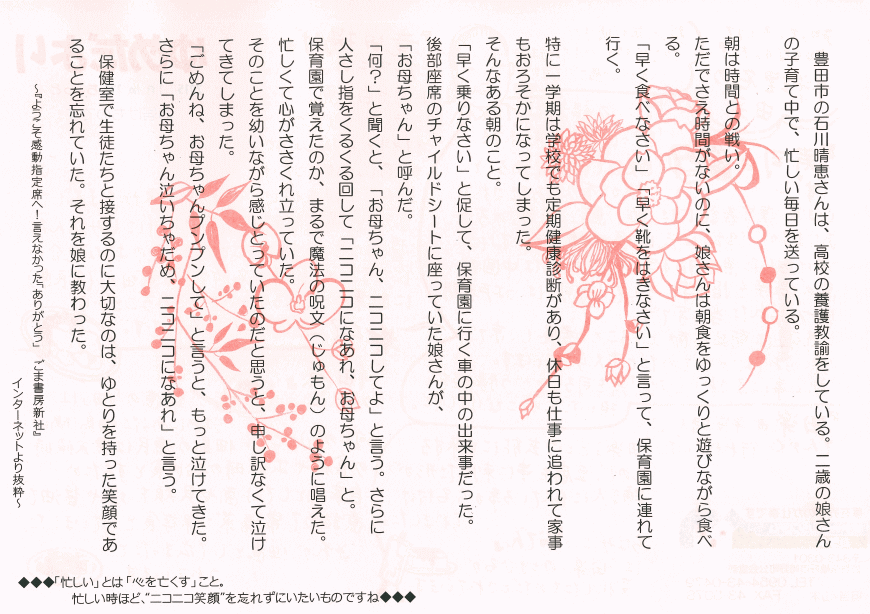 豊田市の石川晴恵さんは、高校の養護教諭をしている。二歳の娘さん
の子育て中で、忙しい毎日を送っている。
朝は時間との戦い。
ただでさえ時間がないのに、娘さんは朝食をゆっくりと遊びながら食べ
る。
「早く食べなさい」「早く靴をはきなさい」と言って、保育園に連れて
行く。
特に一学期は学校でも定期健康診断があり、休日も仕事に追われて家事
もおろそかになってしまった。
そんなある朝のこと。
「早く乗りなさい」と促して、保育園に行く車の中の出来事だった。
後部座席のチャイルドシートに座っていた娘さんが、
「お母ちゃん」と呼んだ。
「何？」と聞くと、「お母ちゃん、ニコニコしてよ」と言う。さらに
人さし指をくるくる回して「ニコニコになあれ、お母ちゃん」と。
保育園で覚えたのか、まるで魔法の呪文（じゅもん）のように唱えた。
忙しくて心がささくれ立っていた。
そのことを幼いながら感じとっていたのだと思うと、申し訳なくて泣け
てきてしまった。
「ごめんね、お母ちゃんプンプンしてて」と言うと、もっと泣けてきた。
さらに「お母ちゃん泣いちゃだめ、ニコニコになあれ」と言う。
保健室で生徒たちと接するのに大切なのは、ゆとりを持った笑顔であ
ることを忘れていた。それを娘に教わった。
～『ようこそ感動指定席へ！言えなかった「ありがとう」　ごま書房新社』
インターネットより抜粋～
◆◆◆「忙しい」とは「心を亡くす」こと。
忙しい時ほど、“ニコニコ笑顔”を忘れずにいたいものですね◆◆◆